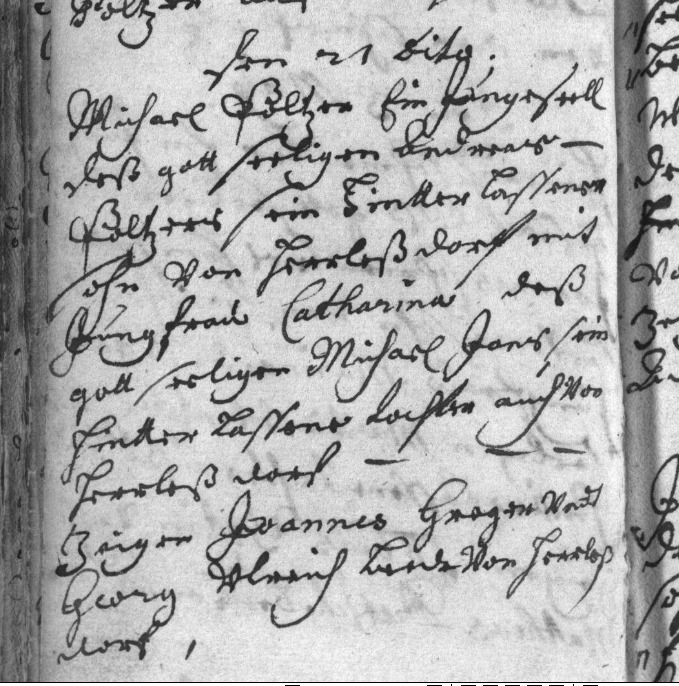 den 21 dito.
Michael Pöltzer Ein Junggesell
deß gott seeligen Andreas
Pöltzers sein hintter lassener
sohn Von Herrleß dorf mit
Jungfraw Catharina deß
gott seeligen Michael Jans sein
hintter lassene dochter auch Von
Herrleß dorf
Zeugen Joannes Greger Vndt
Georg Vlrich beede Von Herrleß
dorf,